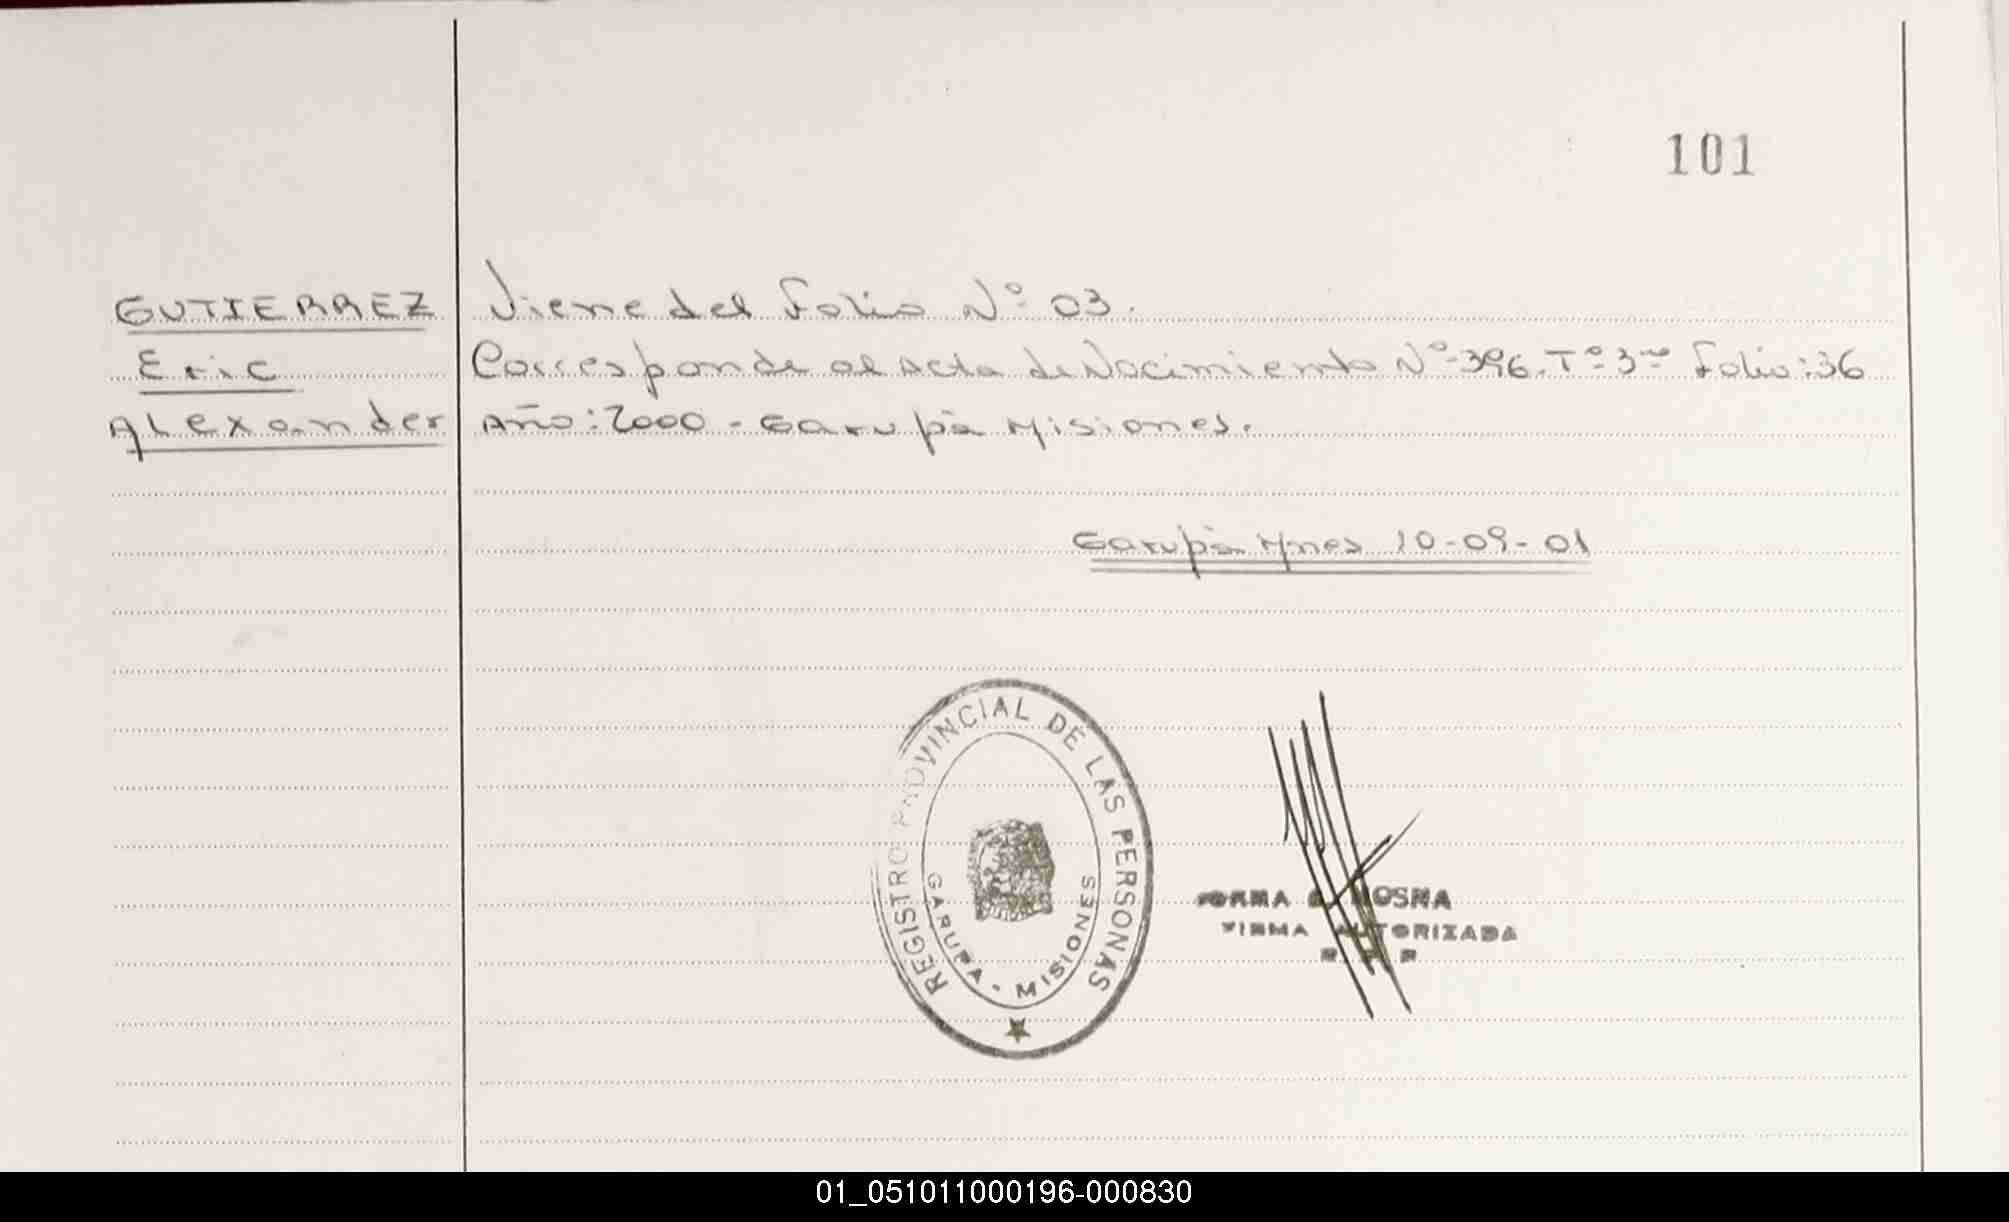 101
GUTIERREZ Viene del Folio Nº 03.
Eric Corresponde al acta de Nacimiento Nº 396. Tº 3ro Folio: 36
Alexander Año: 2000 - Garupá Misiones.
Garupá Mnes 10-09-01
REGISTRO PROVINCIAL DE LAS PERSONAS
GARUPA - MISIONES
MOSNA
FIRMA AUTORIZADA
01_051011000196-000830